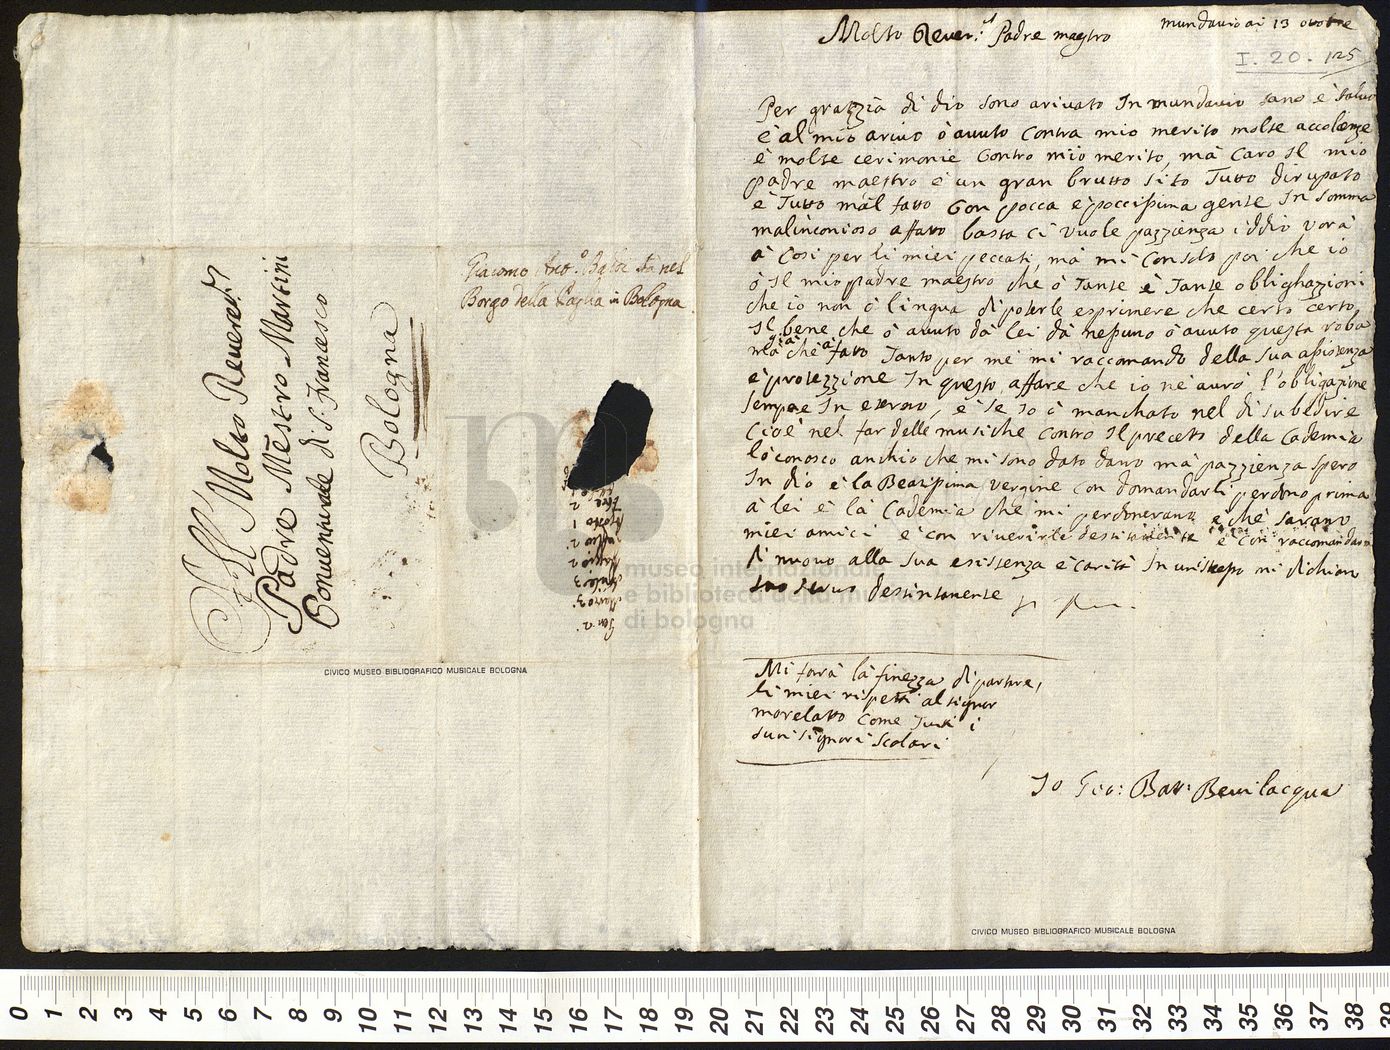 Molto Rever.d Padre maestro
mundavio ai 13 ottobre
I. 20. 125
Per grazzia di dio sono arivato In mundavio sano è salvo
è al mio arivo ò avuto contra mio merito molte accolienze
è molte cerimonie contro mio merito, mà caro Il mio
padre maestro è un gran brutto sito Tutto dirupato
è Tutto mal fatto con pocca è poccissima gente In somma
malinconioso affatto basta ci vuole pazzienza iddio vorà
à Cosi per li miei peccati, mà mi Consolo poi che io
ò Il mio padre maestro che ò Tante è Tante oblighazioni
che io non ò lingua di poterle esprimere che certo certo,
Il bene che ò avuto dà lei dà nessuno ò avuto questa roba
mà già ché à fatto Tanto per me mi raccomando della sua assistenza
è protezzione In questo affare che io né aurò l'obligazione
sempre In eterno, è se Io ò manchato nel disubedire
Cioè nel far delle musiche contro Il precetto della Cademia
lò conosco anchio che mi sono dato dano mà pazzienza spero
In dio è la Beatissima vergine con domandarli perdono prima
à lei è là Cademia che mi perdonerano e che sarano
miei amici è con riverirle destintamente è con raccomandarmi
di nuovo alla sua esistenza è carità In un istesso mi dichiaro
suo servo destintamente
Mi farà la finezza di portare,
li miei rispetti al signor
morelatto come Tutti i
suoi signori scolari
Io Gio: Batt: Bevilacqua
Giacomo Ant.o Balde Stà nel
Borgo della Paglia in Bologna
All Molto Reveredi
Padre Mestro Martini
Conventuale di S. Francesco
Bologna
Gen 2
Marzo 3
Aprile 3
Maggio 2
Agosto 1
CIVICO MUSEO BIBLIOGRAFICO MUSICALE BOLOGNA
CIVICO MUSEO BIBLIOGRAFICO MUSICALE BOLOGNA
museo internazionale
e biblioteca della musica
di bologna
0 1 2 3 4 5 6 7 8 9 10 11 12 13 14 15 16 17 18 19 20 21 22 23 24 25 26 27 28 29 30 31 32 33 34 35 36 37 38 39